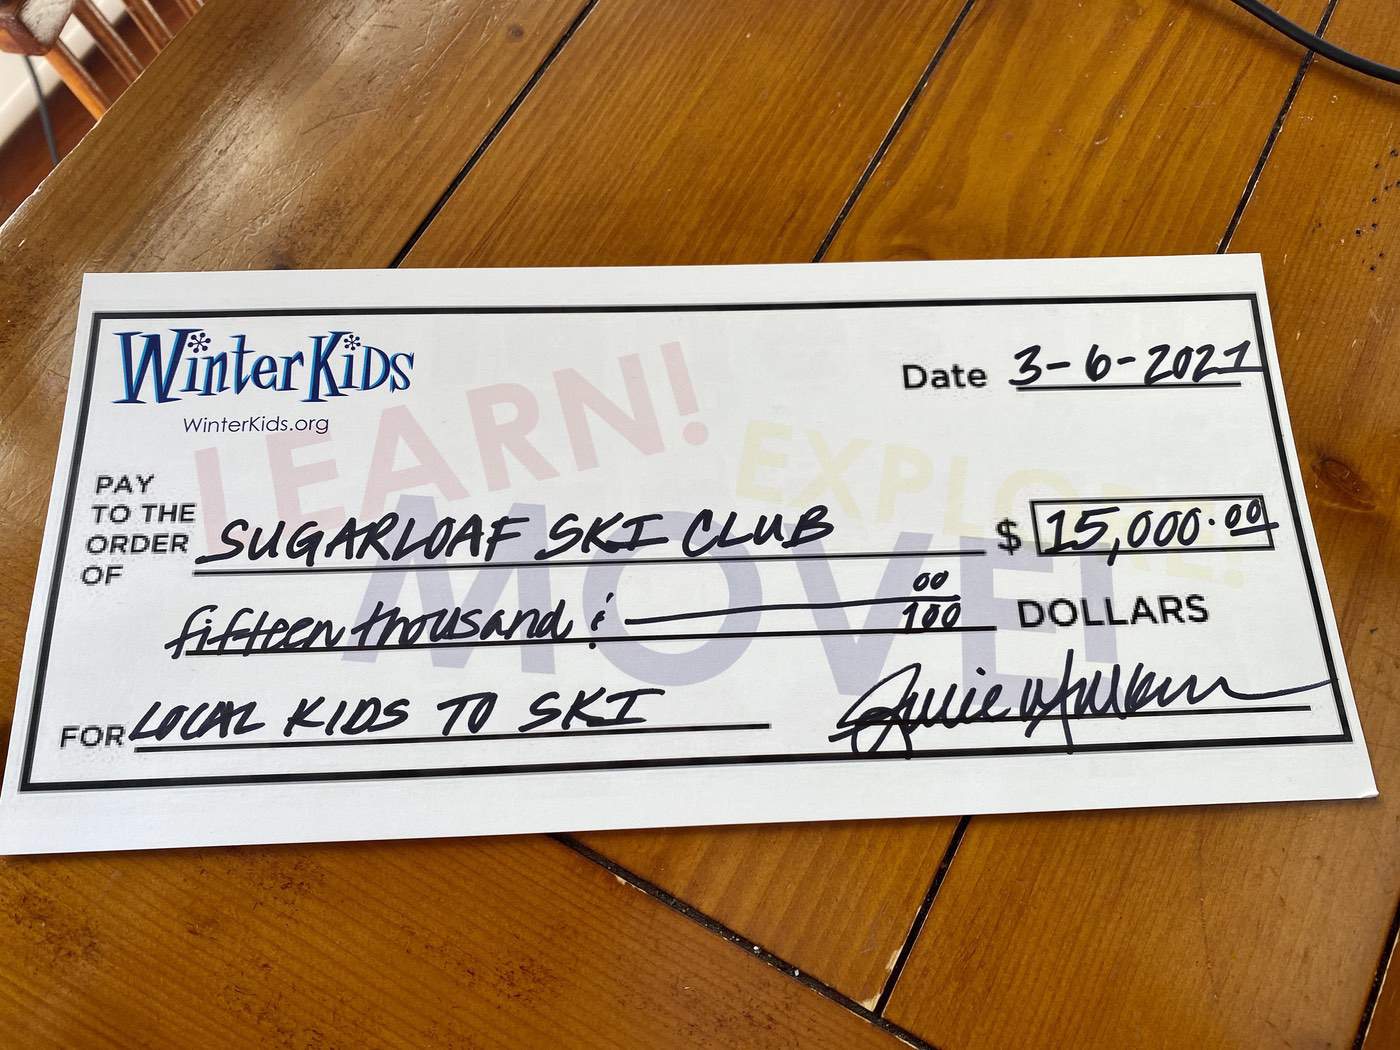 WinterKids
WinterKids.org
Date 3-6-2021
LEARN!
EXPLORE!
MOVE!
PAY
TO THE
ORDER
OF
SUGARLOAF SKI CLUB
$ 15,000.00
fifteen thousand & 00/100 DOLLARS
FOR LOCAL KIDS TO SKI
Julie